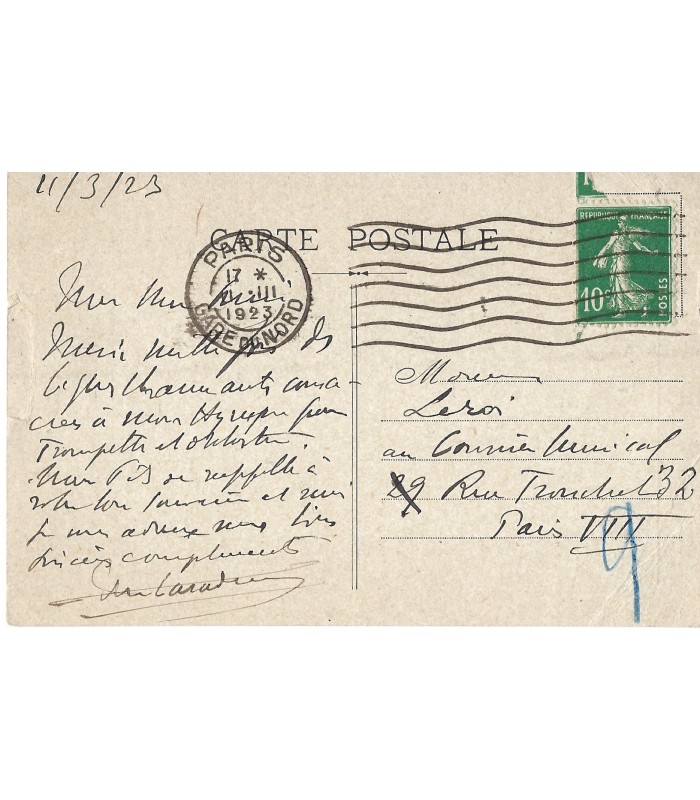 11/3/23
CARTE POSTALE
PARIS
17 *
III
1923
GARE DU NORD
REPUBLIQUE FRANÇAISE
10c
POSTES
Mon
Merci mille fois des
lignes charmantes consa-
crées à mon Hymne pour
Trompette et orchestre
Mon fils se rappelle à
votre bon souvenir et moi
je vous adresse mes
sincères compliments
Monsieur
Leroi
au Courrier Musical
29 Rue Tronchet 32
Paris VIII
9